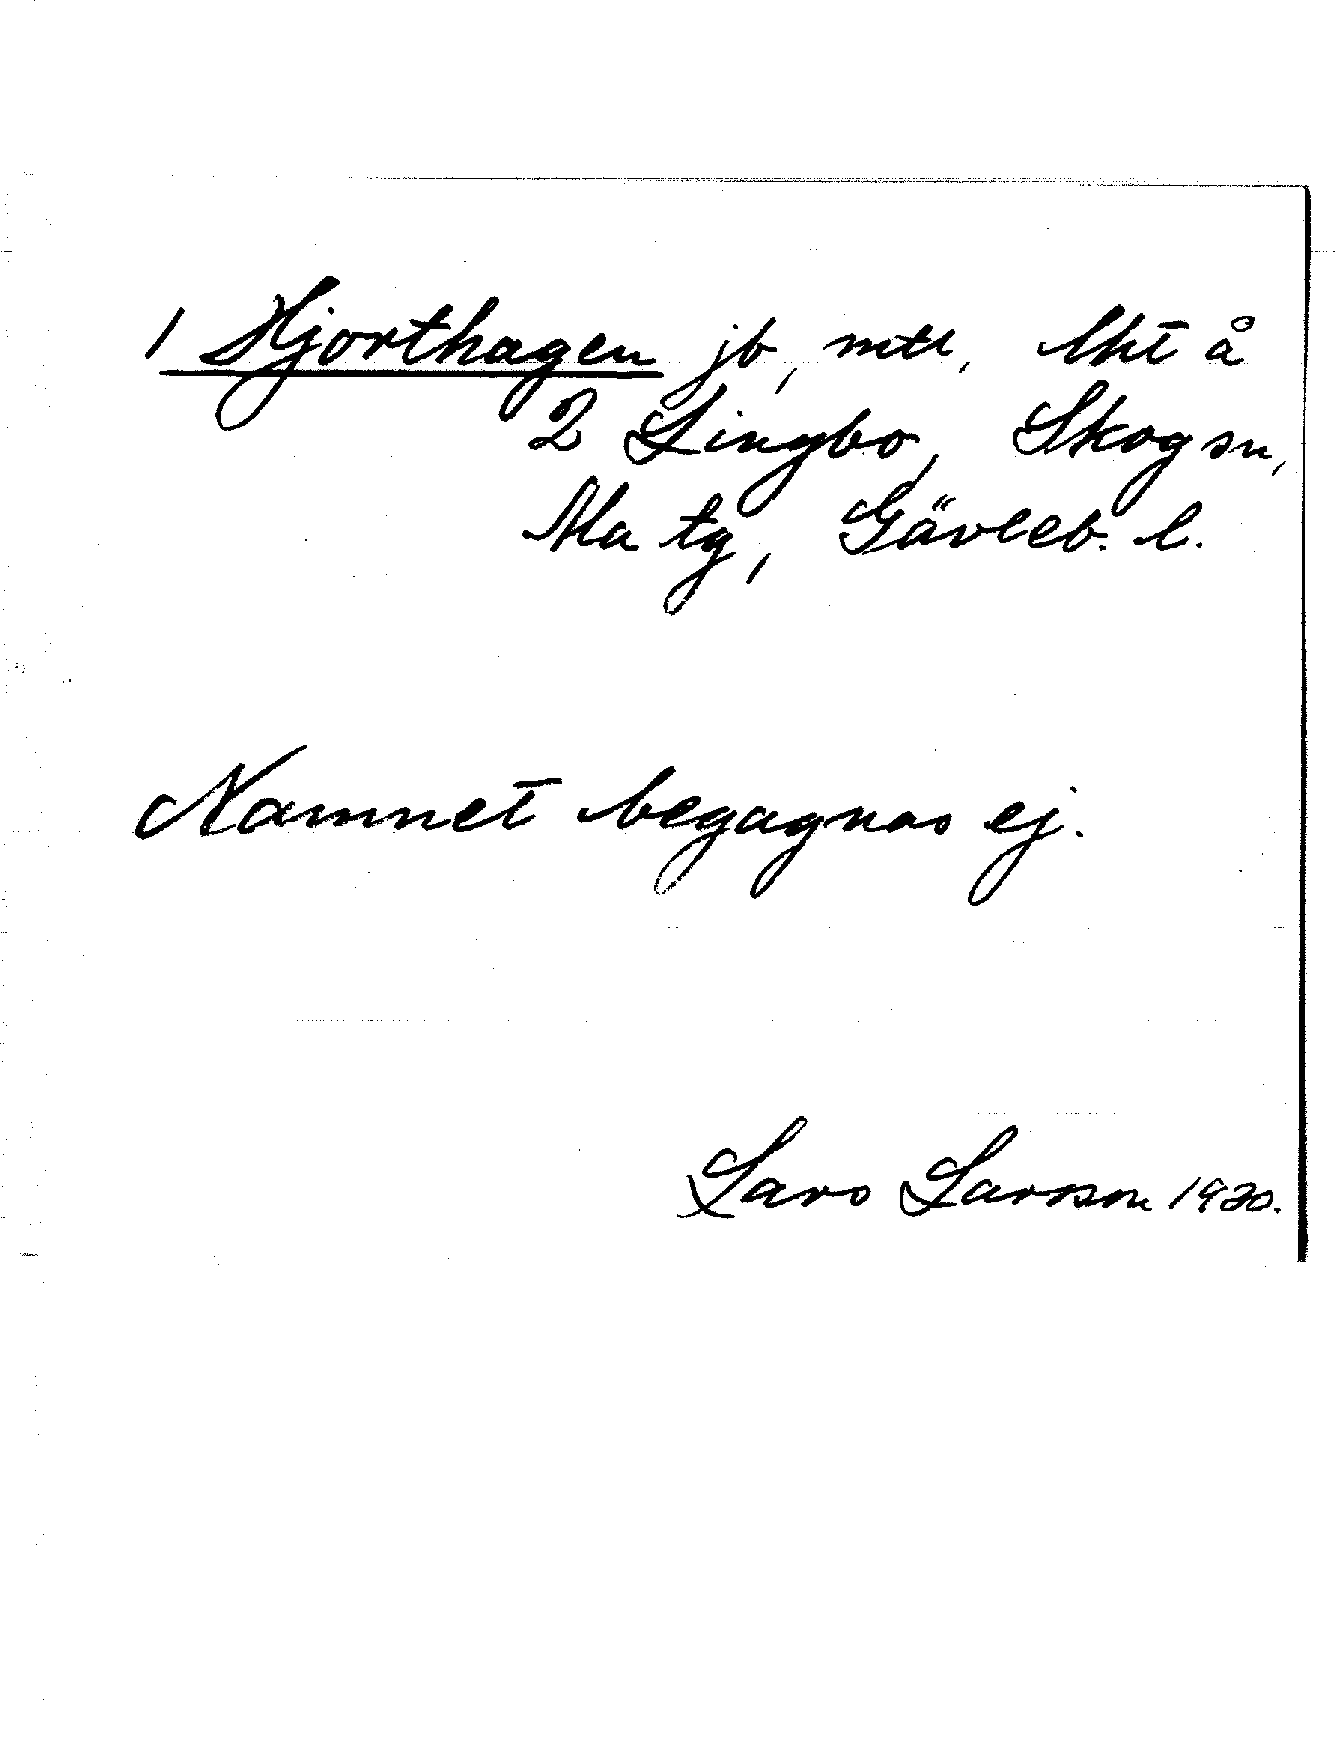 1 Hjorthagen jb, mtl, lht å
2 Lingbo, Skog sn,
Ala tg, Gävleb. l.
Namnet begagnas ej.
Lars Larsson 1920.